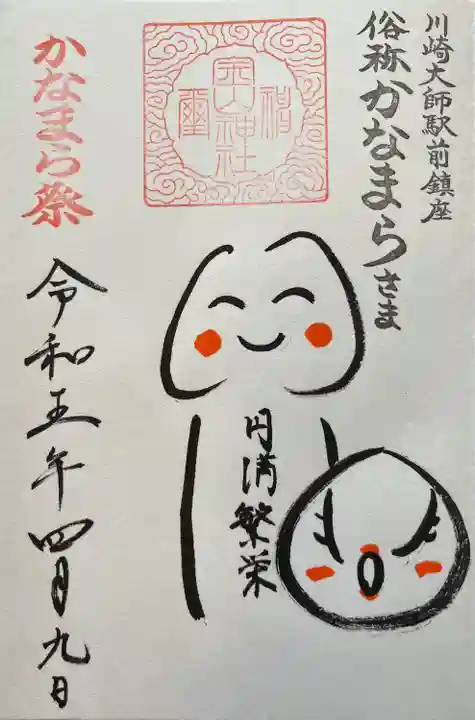 川崎大師駅前鎮座
俗称かなまらさま
金山神社
かなまら祭
円満繁栄
令和五年四月九日